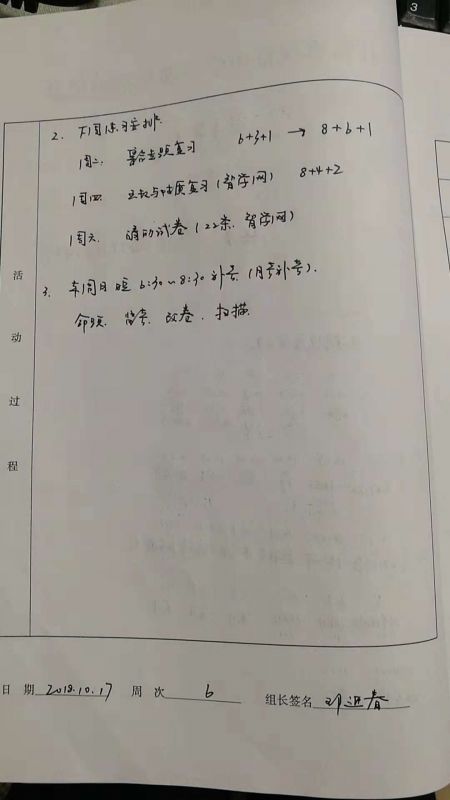 3
2. 下周练习安排.
周二. 集合专题复习 6+3+1 → 8+6+1
周四. 函数与性质复习(智学网) 8+4+2
周六. 滴的试卷(22条. 智学网)
3. 本周日晚 6:30~8:30 补考(月考补考).
命题. 监考. 改卷. 扫描.
活动过程
日 期 2018.10.17 周 次 6 组长签名 邓迎春